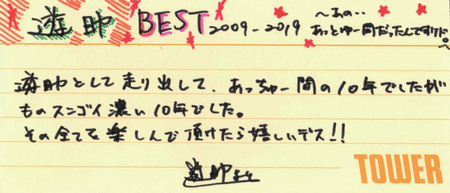 遊助 BEST 2009-2019 〜あの‥
あっとゅー間だったんですけど。〜
遊助として走り出して、あっちゅー間の10年でしたが
ものスンゴイ濃い10年でした。
その全てを楽しんで頂けたら嬉しいデス!!
遊助より
TOWER